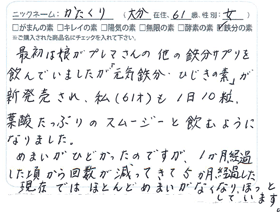 ニックネーム：かたくり （大分 在住、61歳、性別：女）
□がまんの素 □キレイの素 □陽気の素 □無敵の素 □酵素の素 ☑鉄分の素
※ご購入された商品名にチェックを入れて下さい。
最初は娘がプレマさんの他の鉄分サプリを
飲んでいましたが「元気鉄分・ひじきの素」が
新発売され、私(61才)も1日10粒、
葉酸たっぷりのスムージーと飲むように
なりました。
めまいがひどかったのですが、1か月経過
した頃から回数が減ってきて5か月経過した
現在ではほとんどめまいがなくなり、ほっと
しています。